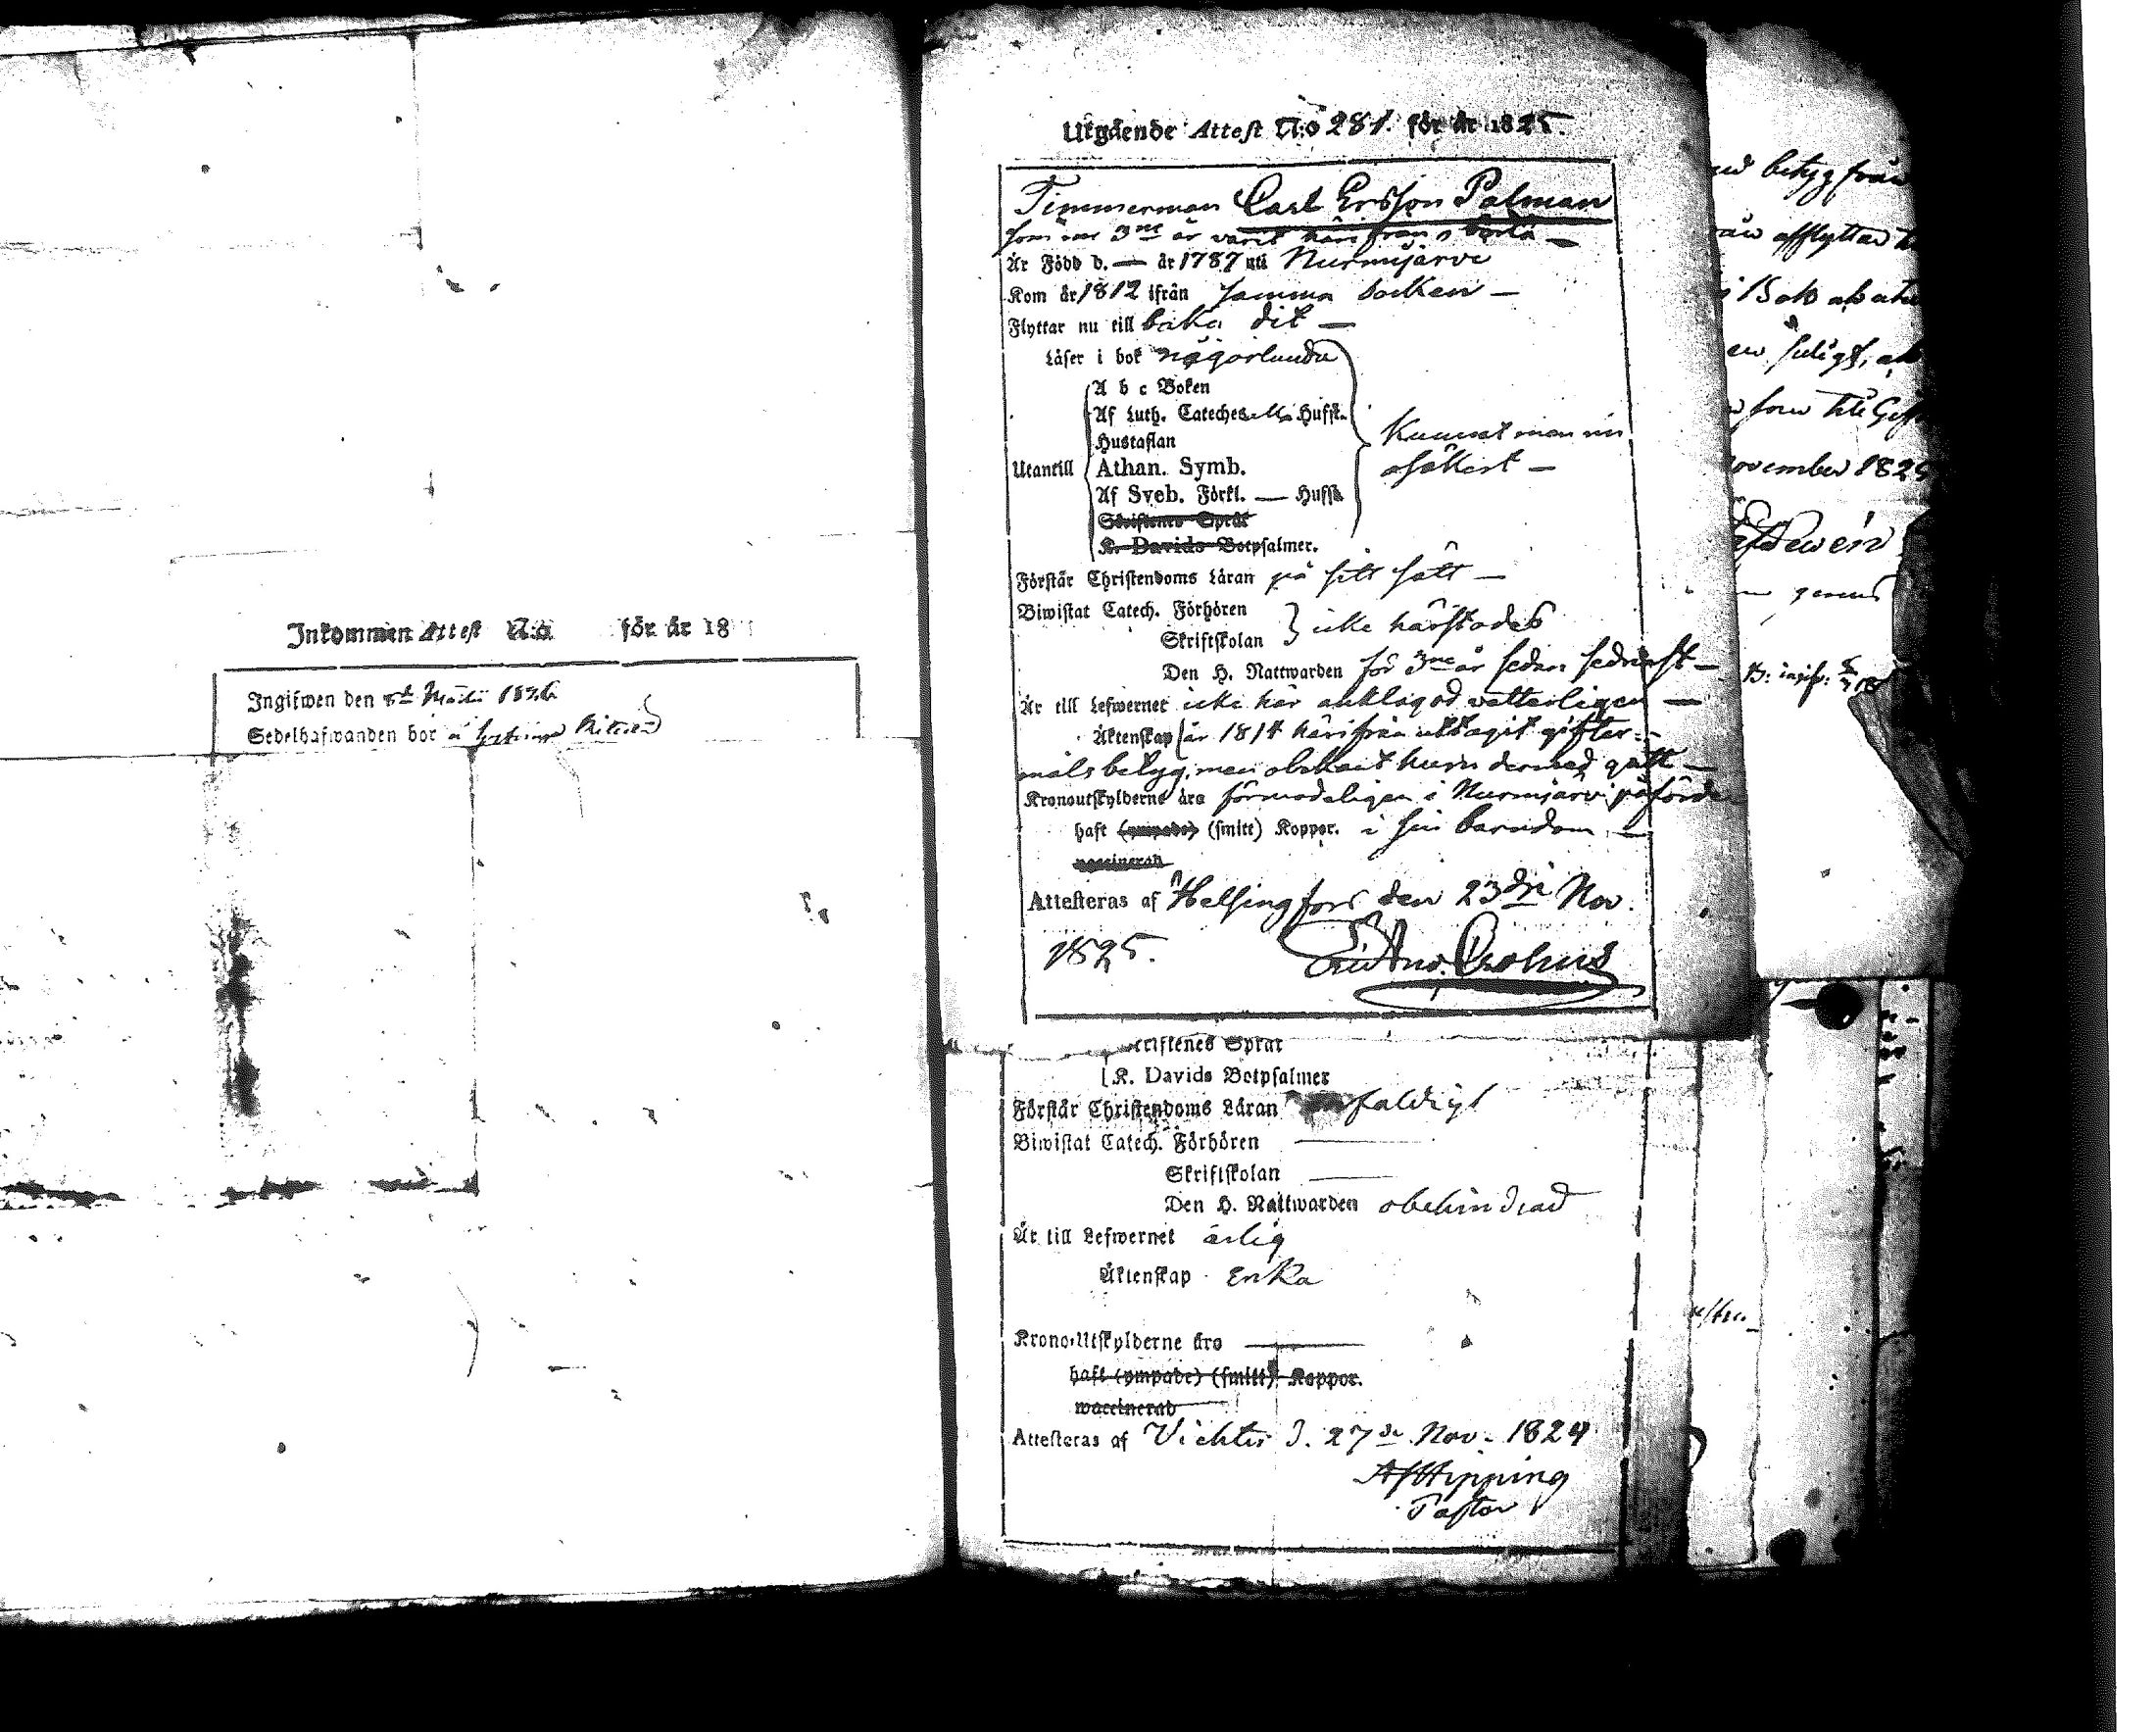 Inkommen Attest N:o för år 18
Ingifwen den 8de Martii 1826
Sedelhafwanden bor å
Utgående Attest N:o 281. för år 1825.
Timmerman Carl Ersson Palman
som nu 3ne år varit härifrån borta —
Är Född d. — år 1787 uti Nurmijärvi
Kom år 1812 ifrån samma socken —
Flyttar nu till baka dit —
Läser i bok någorlunda
A b c Boken
Af Luth. Cateches alla Hufst.
Hustaflan
Utantill Athan. Symb.
Af Sveb. Förkl. — Hufst.
Skriftenes Språk
K. Davids Botpsalmer.
Kunnat men nu
osäkert —
Förstår Christendoms Läran på sitt sätt —
Biwistat Catech. Förhören
Skriftskolan
icke härstädes
Den H. Nattwarden för 3ne år sedan sednast —
Är till Lefwernet icke här anklagad vetterligen —
Äktenskap år 1814 härifrån uttagit gifter-
måls betyg, men obekant huru dermed gått —
Kronoutskylderne äro förmodeligen i Nurmijärvi påförde
haft (ympade) (smitt) Koppor. i sin barndom —
vaccinerad
Attesteras af Helsingfors den 23dje Nov.
1825.
Crohns
Skriftenes Språk
K. Davids Botpsalmer
Förstår Christendoms Läran enfaldigt
Biwistat Catech. Förhören —
Skriftskolan —
Den H. Nattwarden obehindrad
Är till Lefwernet ärlig
Äktenskap Enka
Krono-Utskylderne äro —
haft (ympade) (smitt) Koppor.
waccinerad
Attesteras af Vichtis d. 27de Nov. 1824
AJHipping
Pastor
betyg från
afflyttad
som till
November 1825